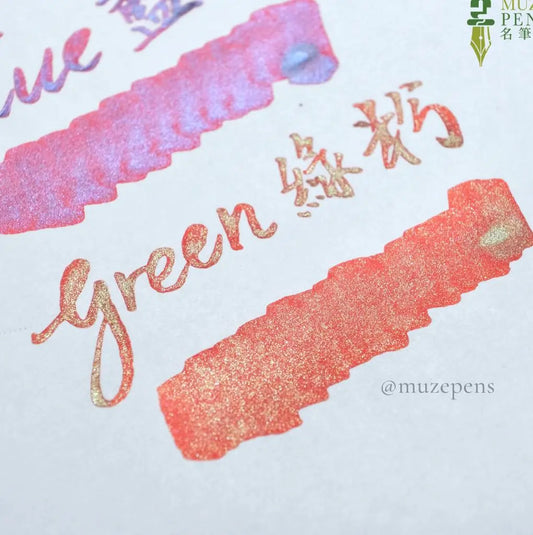 MUZE
PENS
名筆
green 綠粉
@muzepens